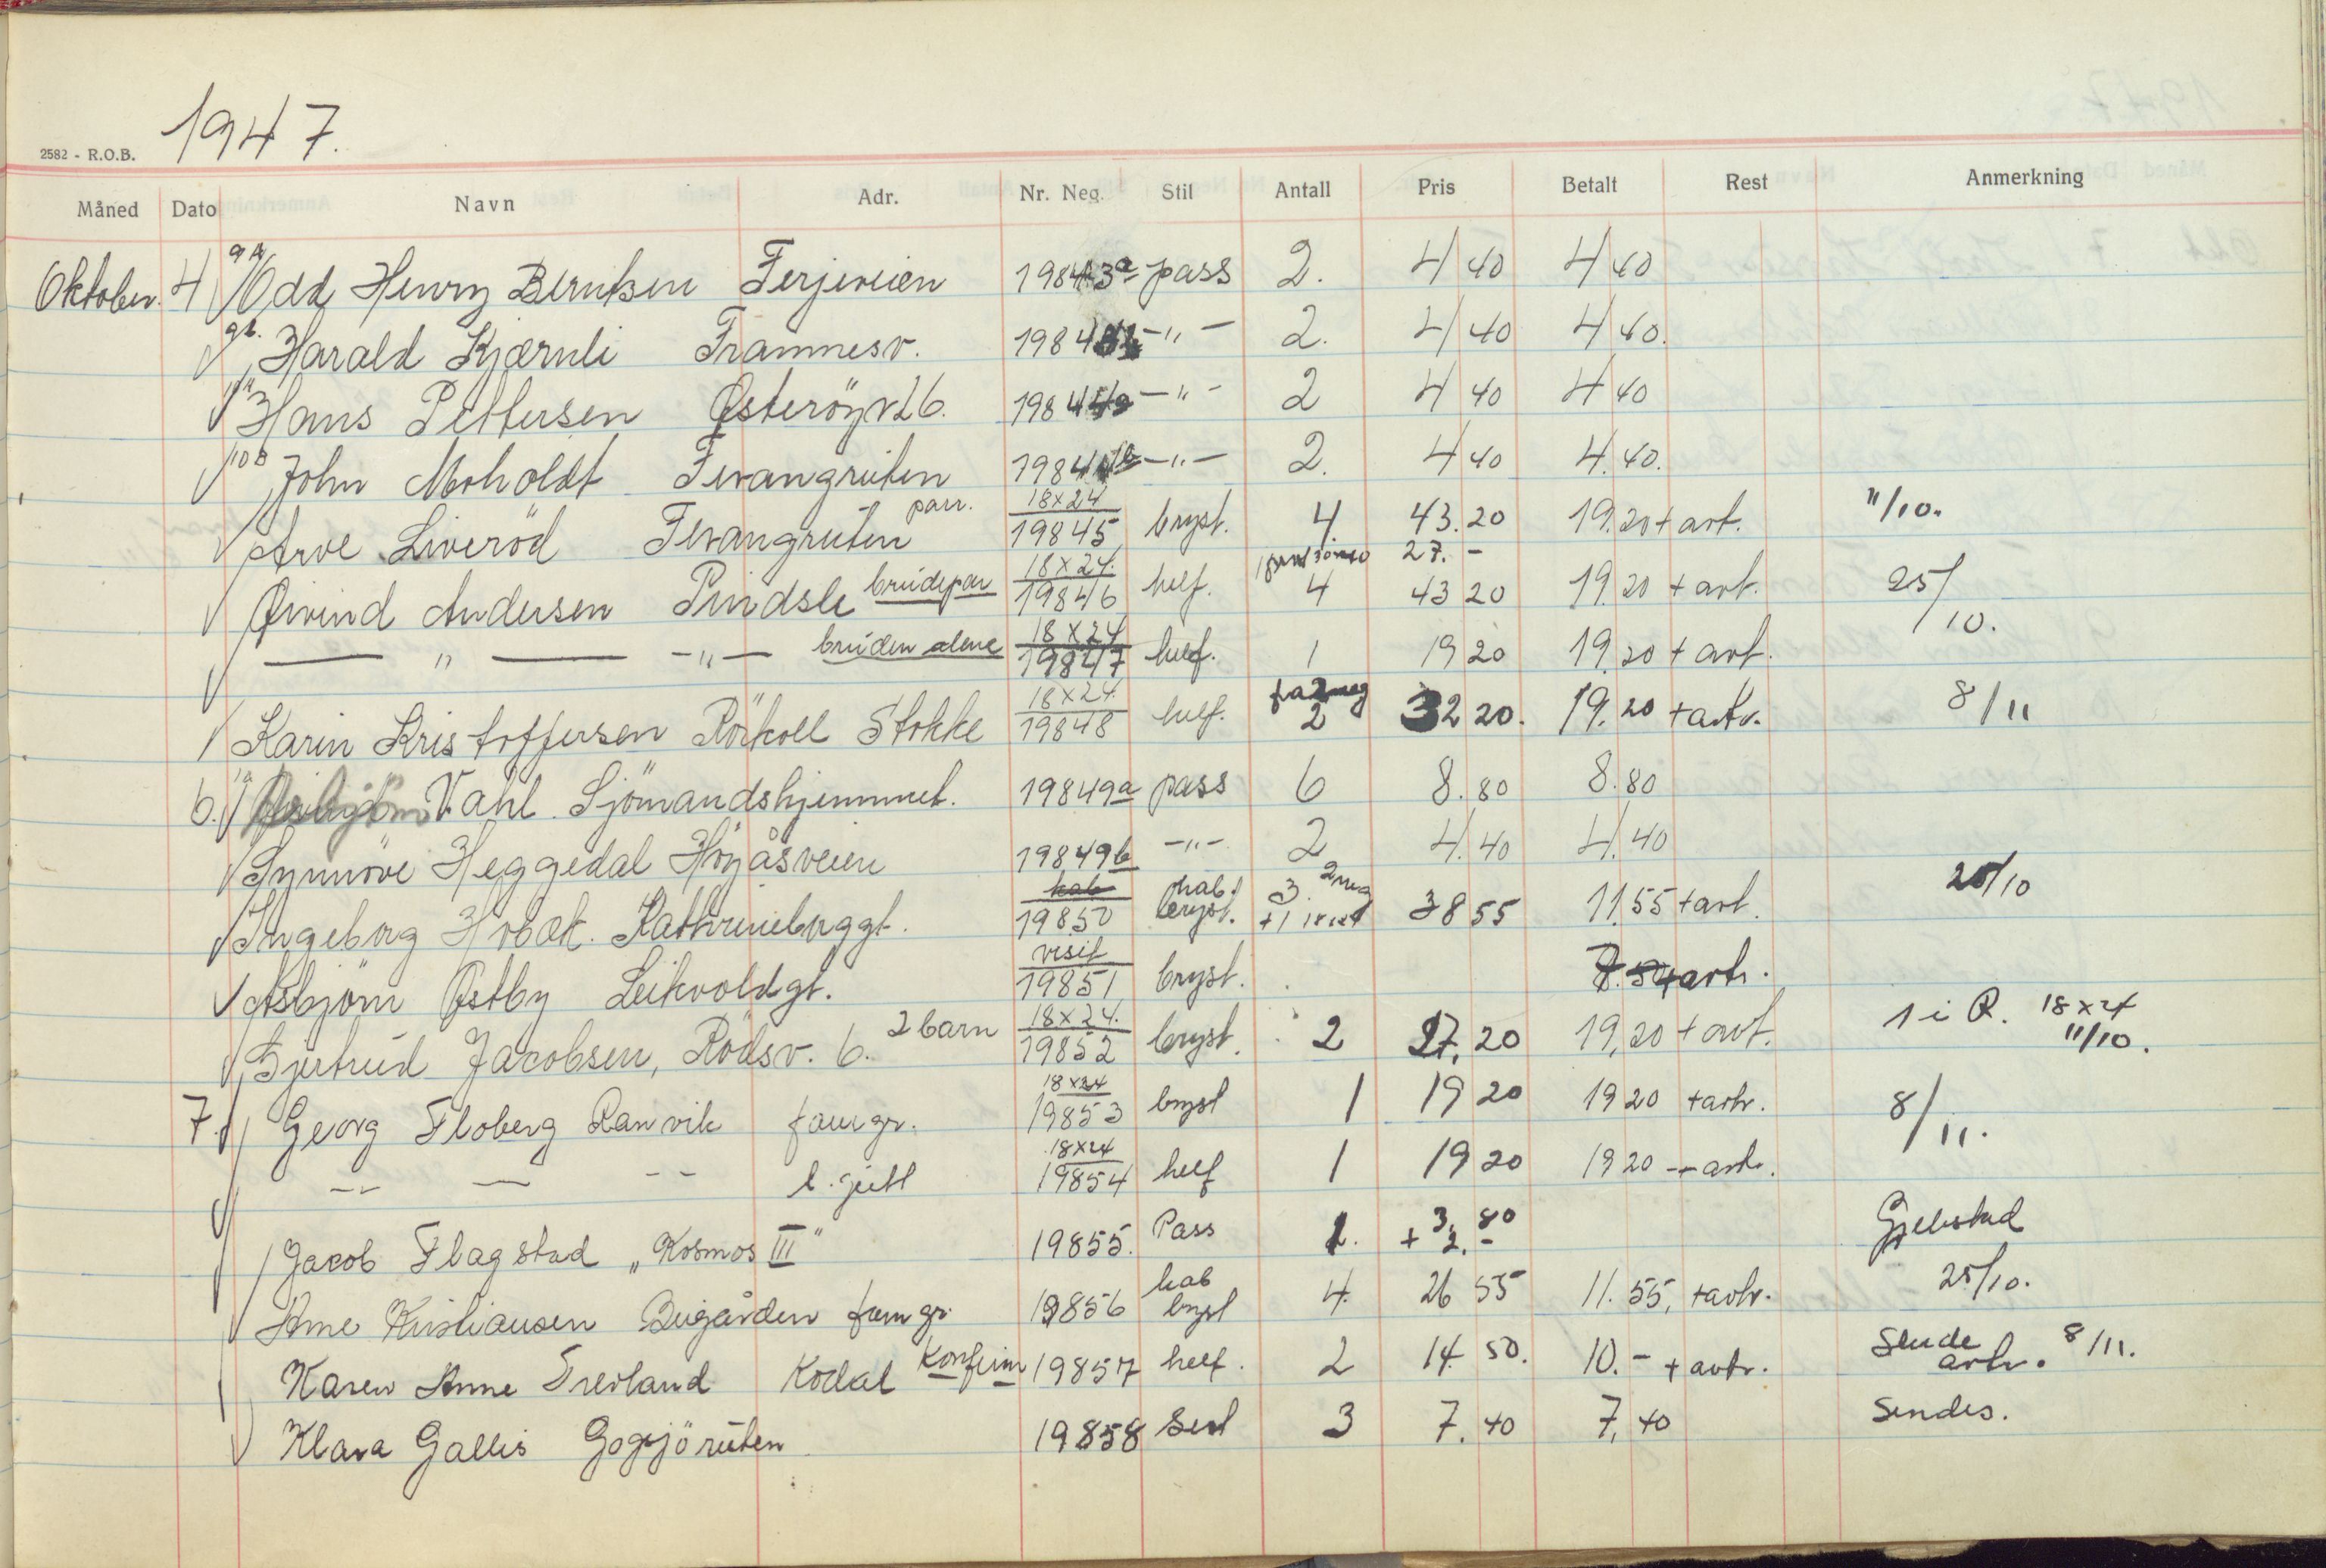 1947.
2582 - R.O.B.
Måned Dato Navn Adr. Nr. Neg. Stil Antall Pris Betalt Rest Anmerkning
Oktober. 4 Odd Henry Berntsen Ferjeveien 19843a pass 2. 4 40 4 40
Harald Kjærnli Framnesv. 1984 -"- 2. 4 40 4 40.
Hans Pettersen Østeröyv 26. 1984 -"- 2 4 40 4 40
John Moholdt Tevangruten 1984 -"- 2. 4 40 4.40.
Arve Liveröd Tevangruten parr. 18x24 19845 bryst. 4 43.20 19.20 + avt. 11/10.
27.-
Øivind Andersen Pindsle brudepar 18x24. 19846 helf. 4 43 20 19.20 + avt. 25/10.
— " — -"- bruden alene 18x24 19847 helf. 1 19 20 19.20 + avt.
Karin Kristoffersen Rörkoll Stokke 18x24. 19848 helf. fra 2 neg 2 32 20. 19.20 + avtr. 8/11
6. Vahl Sjömandshjemmet. 19849a pass 6 8.80 8.80
Synnöve Heggedal Höyåsveien 19849b -"- 2 4.40 4.40
Ingeborg Hvaak. Kathrineborggt. kab 19850 kab. bryst. 3. 2 neg +1 18x24 38 55 11.55 + avt. 25/10
Asbjörn Østby Leikvoldgt. visit 19851 bryst. avtr.
Gjertrud Jacobsen, Rödsv. 6. 2 barn 18x24. 19852 bryst. 2 27.20 19,20 + avt. 1 i R. 18x24 11/10.
7. Georg Floberg Ranvik famgr. 18x24 19853 bryst 1 19 20 19 20 + avtr. 8/11.
-"- — -- l. gutt 18x24 19854 helf 1 19 20 19 20 + avtr.
Jacob Flagstad „Kosmos III" 19855. Pass 1. 3.80 + 2.- Gjelstad
Arne Kristiansen Bugården famgr. 19856 kab bryst 4. 26 55 11.55, + avtr. 25/10.
Karen Anne Trevland Kodal Konfirm 19857 helf. 2 14.50. 10.- + avtr. Sende avtr. 8/11.
Klara Gallis Gogsjöruten 19858 3 7.40 7,40 Sendes.